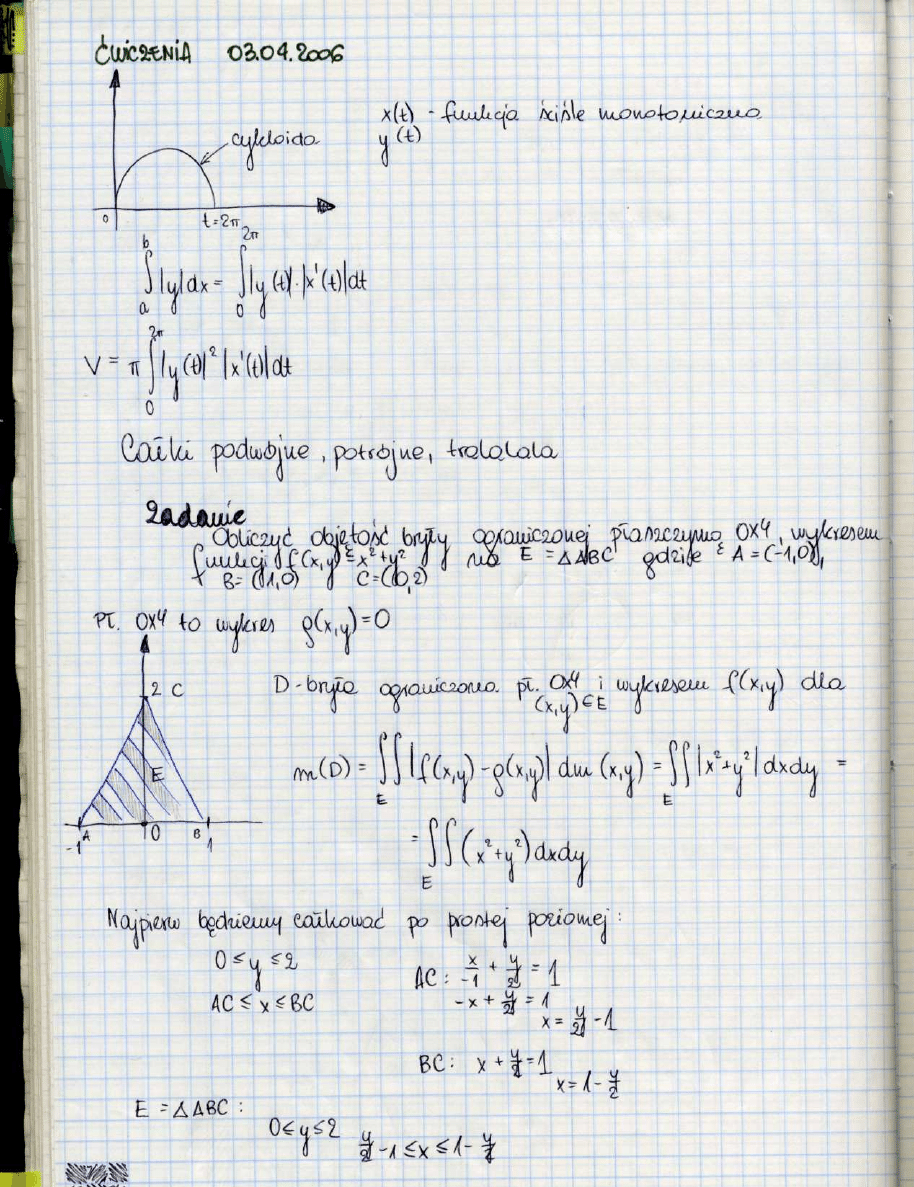 ĆWICZENIA 03.04.2006
x(t) - funkcja ściśle monotoniczna
y(t)
cykloida
0 t=2π
∫_a^b |y|dx = ∫_0^{2π} |y(t)|·|x'(t)|dt
V = π ∫_0^{2π} |y(t)|² |x'(t)|dt
Całki podwójne, potrójne, tralalala
Zadanie
Obliczyć objętość bryły ograniczonej płaszczyzną 0XY, wykresem
funkcji f(x,y) = x²+y² na E = △ABC gdzie: A = (-1,0),
B = (1,0) C = (0,2)
Pł. 0XY to wykres g(x,y)=0
2 C
E
A 0 B
-1 1
D - bryła ograniczona pł. 0XY i wykresem f(x,y) dla
(x,y) ∈ E
m(D) = ∬_E |f(x,y) - g(x,y)| dm (x,y) = ∬_E |x²+y²| dxdy =
= ∬_E (x²+y²) dxdy
Najpierw będziemy całkować po prostej poziomej:
0 ≤ y ≤ 2
AC ≤ x ≤ BC
AC: x/-1 + y/2 = 1
-x + y/2 = 1
x = y/2 - 1
BC: x + y/2 = 1
x = 1 - y/2
E = △ABC:
0 ≤ y ≤ 2
y/2 - 1 ≤ x ≤ 1 - y/2